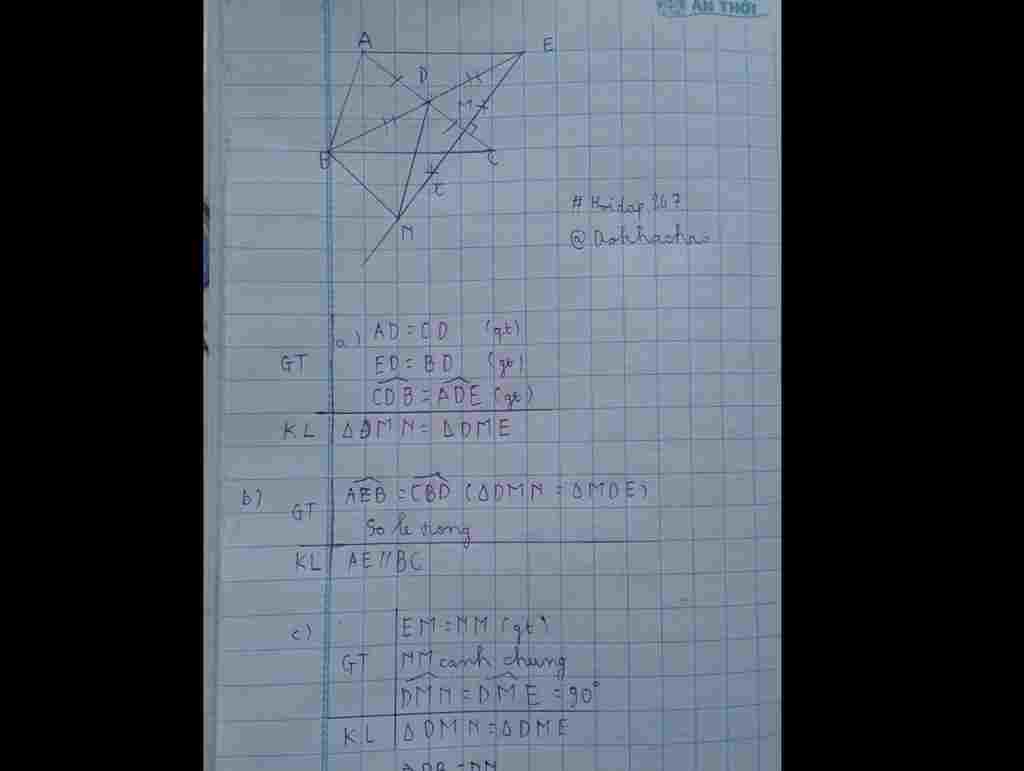 AN THỚI
A
E
D
M
B
C
t
N
# Hoidap 247
a) AD = CD (gt)
GT ED = BD (gt)
CDB = ADE (gt)
KL ΔDMN = ΔDME
b) GT AEB = CBD (ΔDMN = ΔMDE)
So le trong
KL AE // BC
c) EM = NM (gt)
GT NM canh chung
DMN = DME = 90°
KL ΔDMN = ΔDME